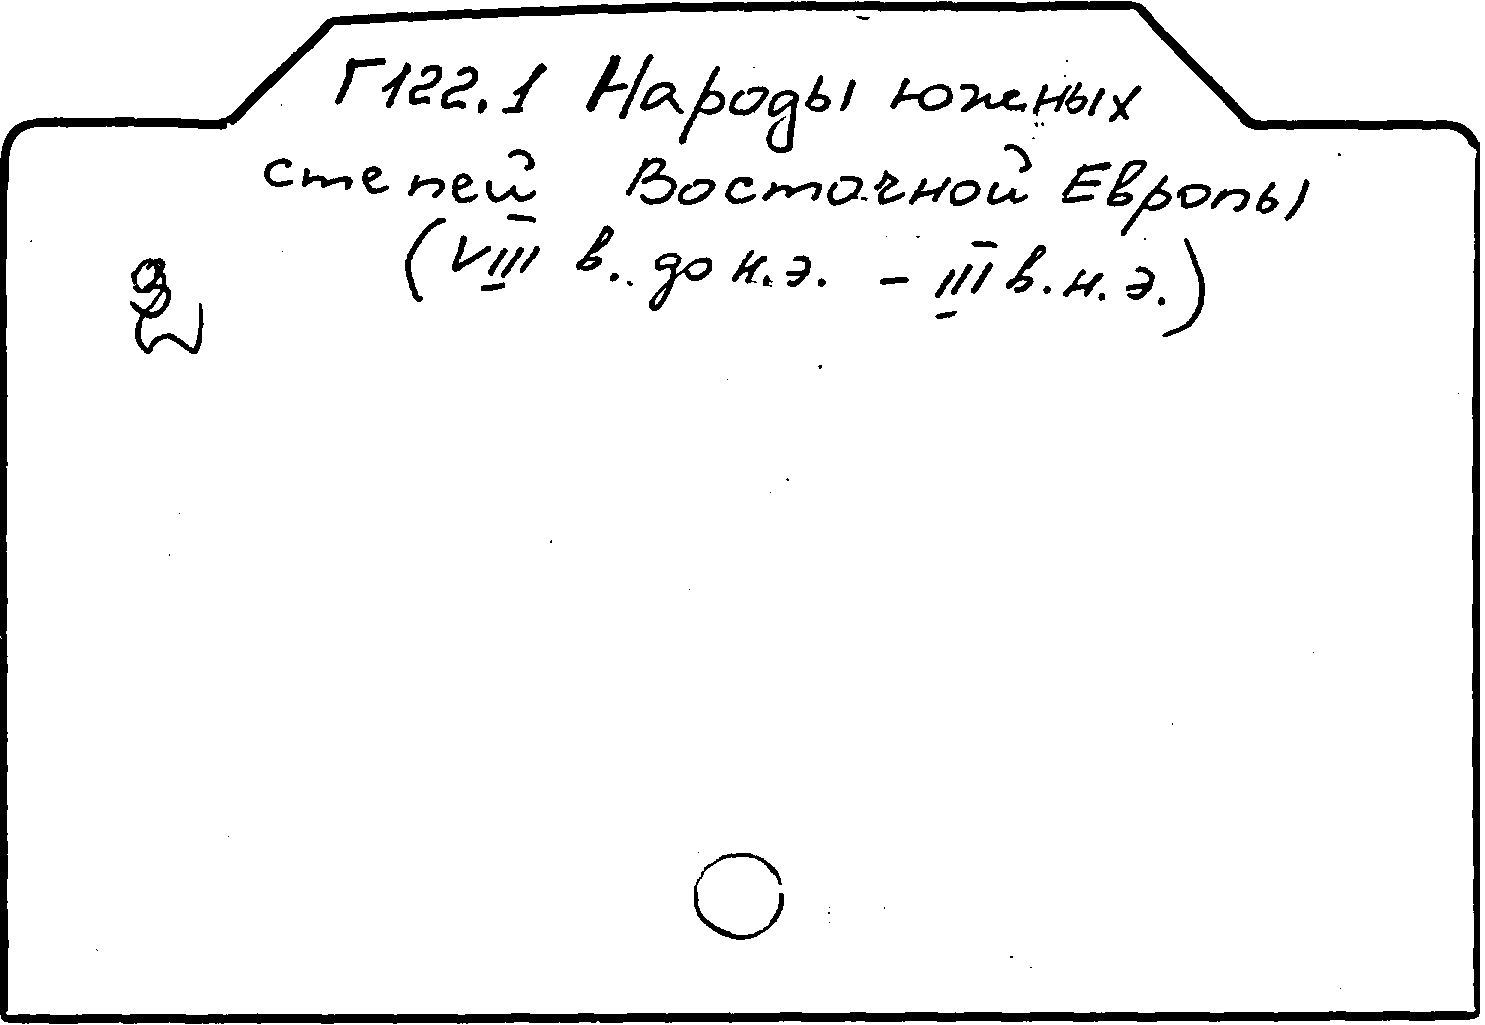 Г122.1 Народы южных
степей Восточной Европы
(VIII в. до н.э. – III в. н.э.)